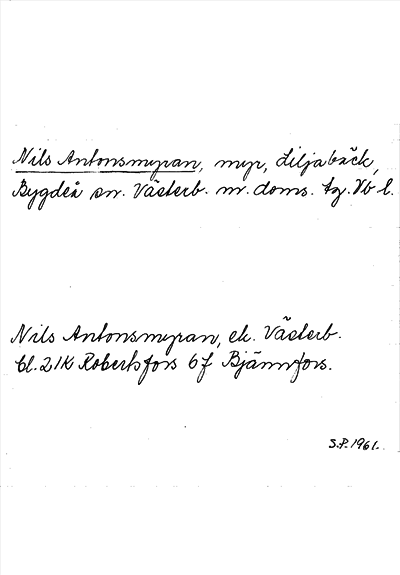 Nils Antonsmyran, myr, Liljabäck,
Bygdeå sn. Västerb. nr. doms. tg. Vb l.
Nils Antonsmyran, ek. Västerb.
bl. 21K Robertsfors 6f Bjännfors.
S.P. 1961.